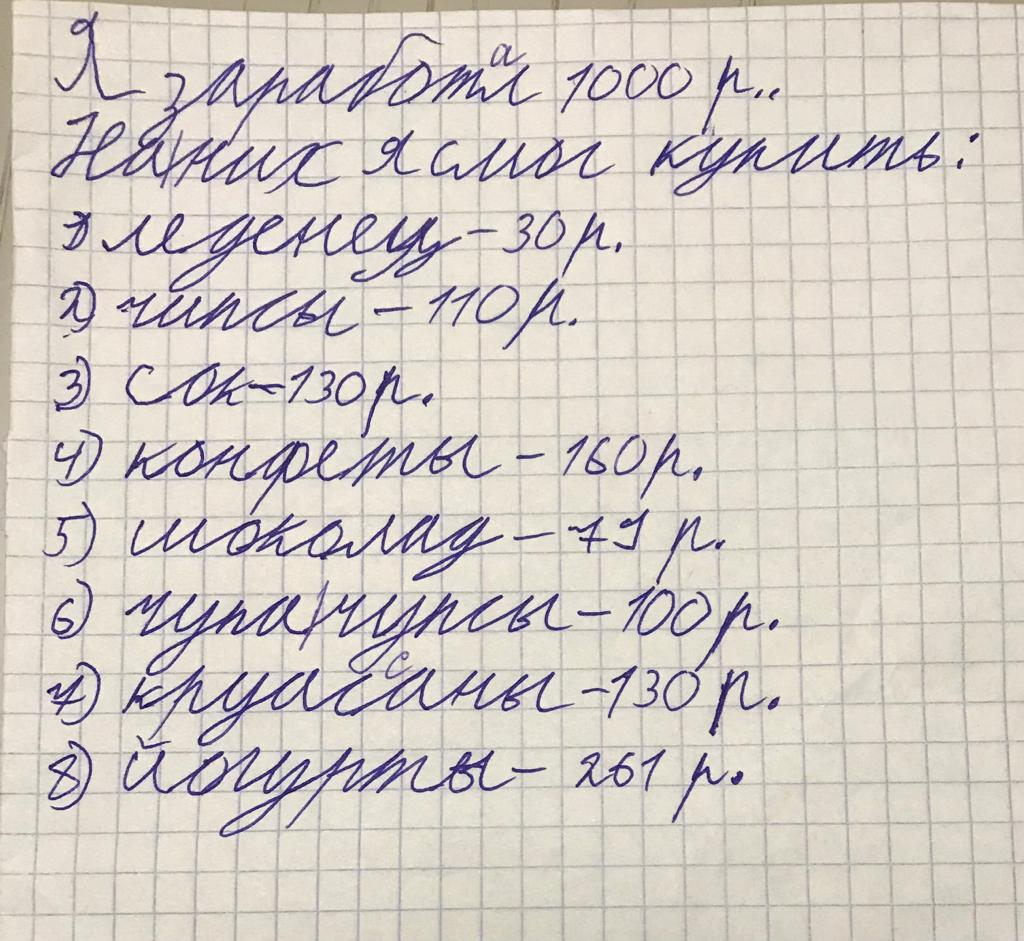 Я заработал 1000 р..
На них я смог купить:
1) леденец - 30 р.
2) чипсы - 110 р.
3) сок - 130 р.
4) конфеты - 160 р.
5) шоколад - 79 р.
6) чупа чупсы - 100 р.
7) круассаны - 130 р.
8) йогурты - 261 р.